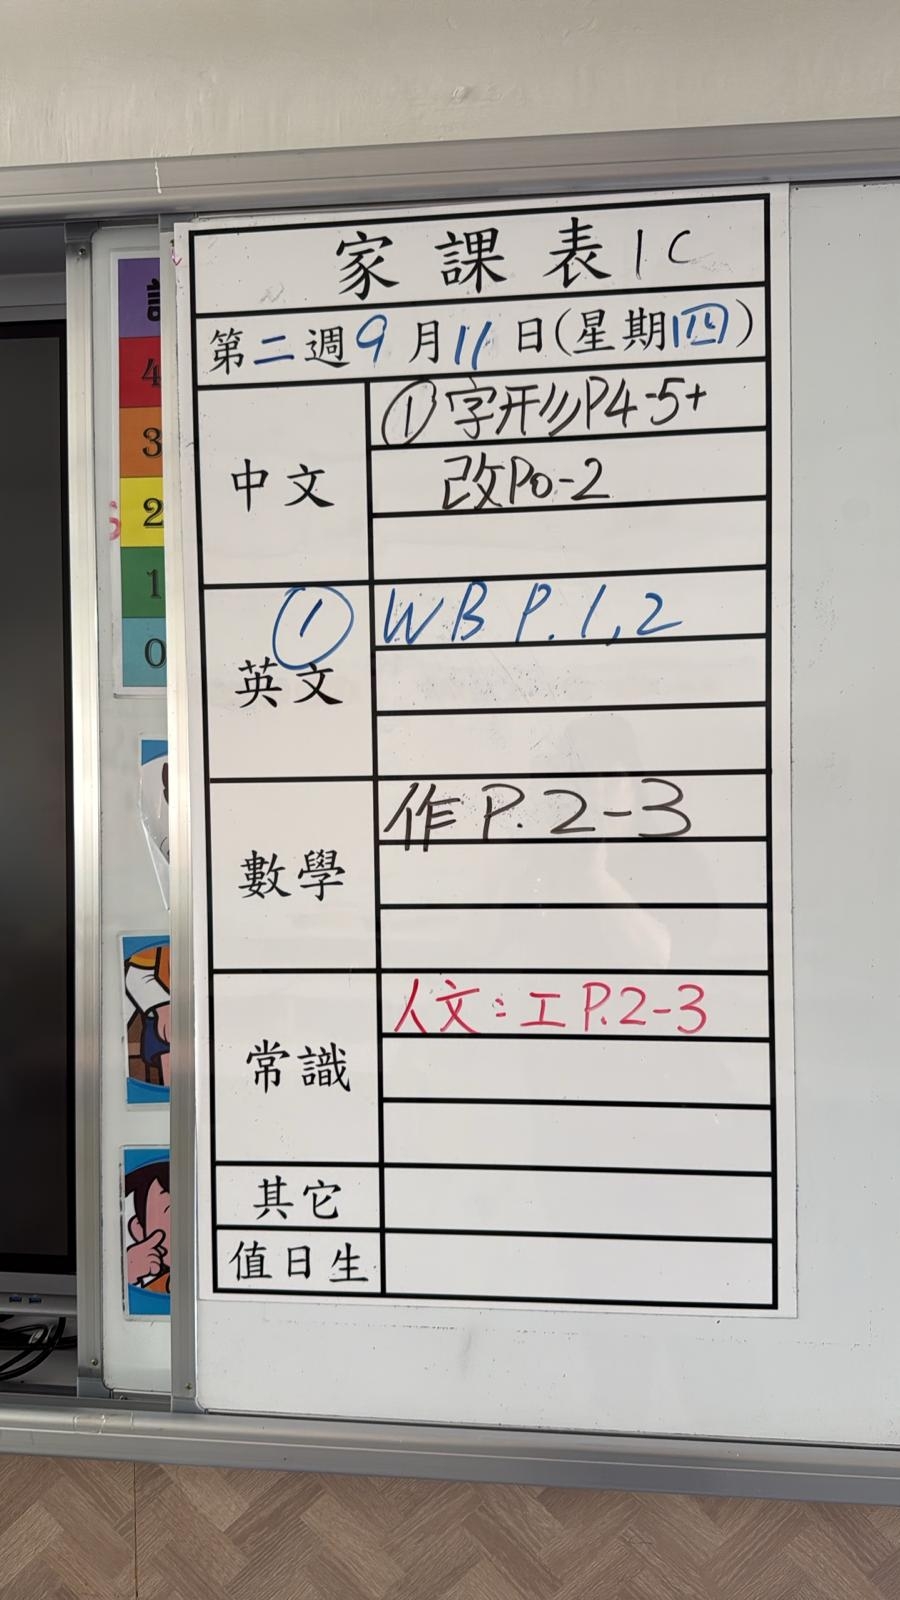 家課表 1C
第二週9月11日(星期四)
中文
①字形P4-5+
改P0-2
英文
① WB P.1,2
數學
作P.2-3
常識
人文:工P.2-3
其它
值日生
4
3
2
1
0